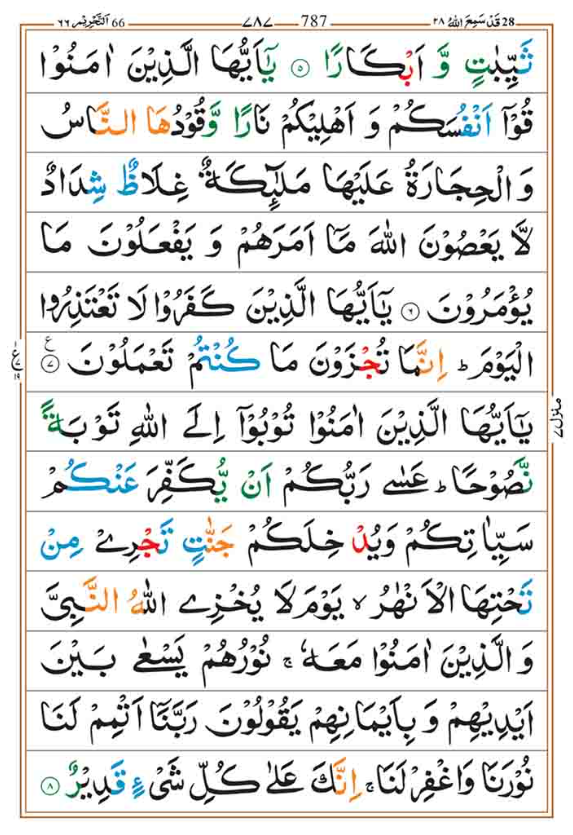 28 قَدْ سَمِعَ اللهُ ٢٨ 787 ٧٨٧ التَّحْرِيْم ٦٦ 66
ثَيِّبٰتٍ وَّ اَبْكَارًا ۝٥ يٰٓاَيُّهَا الَّذِيْنَ اٰمَنُوْا
قُوْٓا اَنْفُسَكُمْ وَ اَهْلِيْكُمْ نَارًا وَّقُوْدُهَا النَّاسُ
وَ الْحِجَارَةُ عَلَيْهَا مَلٰٓئِكَةٌ غِلَاظٌ شِدَادٌ
لَّا يَعْصُوْنَ اللّٰهَ مَآ اَمَرَهُمْ وَ يَفْعَلُوْنَ مَا
يُؤْمَرُوْنَ ۝٦ يٰٓاَيُّهَا الَّذِيْنَ كَفَرُوْا لَا تَعْتَذِرُوا
الْيَوْمَ ؕ اِنَّمَا تُجْزَوْنَ مَا كُنْتُمْ تَعْمَلُوْنَ ۝٧ ع
ع ٧ ١٩
يٰٓاَيُّهَا الَّذِيْنَ اٰمَنُوْا تُوْبُوْٓا اِلَى اللّٰهِ تَوْبَةً
منزل ٧
نَّصُوْحًا ؕ عَسٰى رَبُّكُمْ اَنْ يُّكَفِّرَ عَنْكُمْ
سَيِّاٰتِكُمْ وَيُدْخِلَكُمْ جَنّٰتٍ تَجْرِيْ مِنْ
تَحْتِهَا الْاَنْهٰرُ ۙ يَوْمَ لَا يُخْزِي اللّٰهُ النَّبِيَّ
وَ الَّذِيْنَ اٰمَنُوْا مَعَهٗ ۚ نُوْرُهُمْ يَسْعٰى بَيْنَ
اَيْدِيْهِمْ وَ بِاَيْمَانِهِمْ يَقُوْلُوْنَ رَبَّنَآ اَتْمِمْ لَنَا
نُوْرَنَا وَاغْفِرْ لَنَا ۚ اِنَّكَ عَلٰى كُلِّ شَيْءٍ قَدِيْرٌ ۝٨